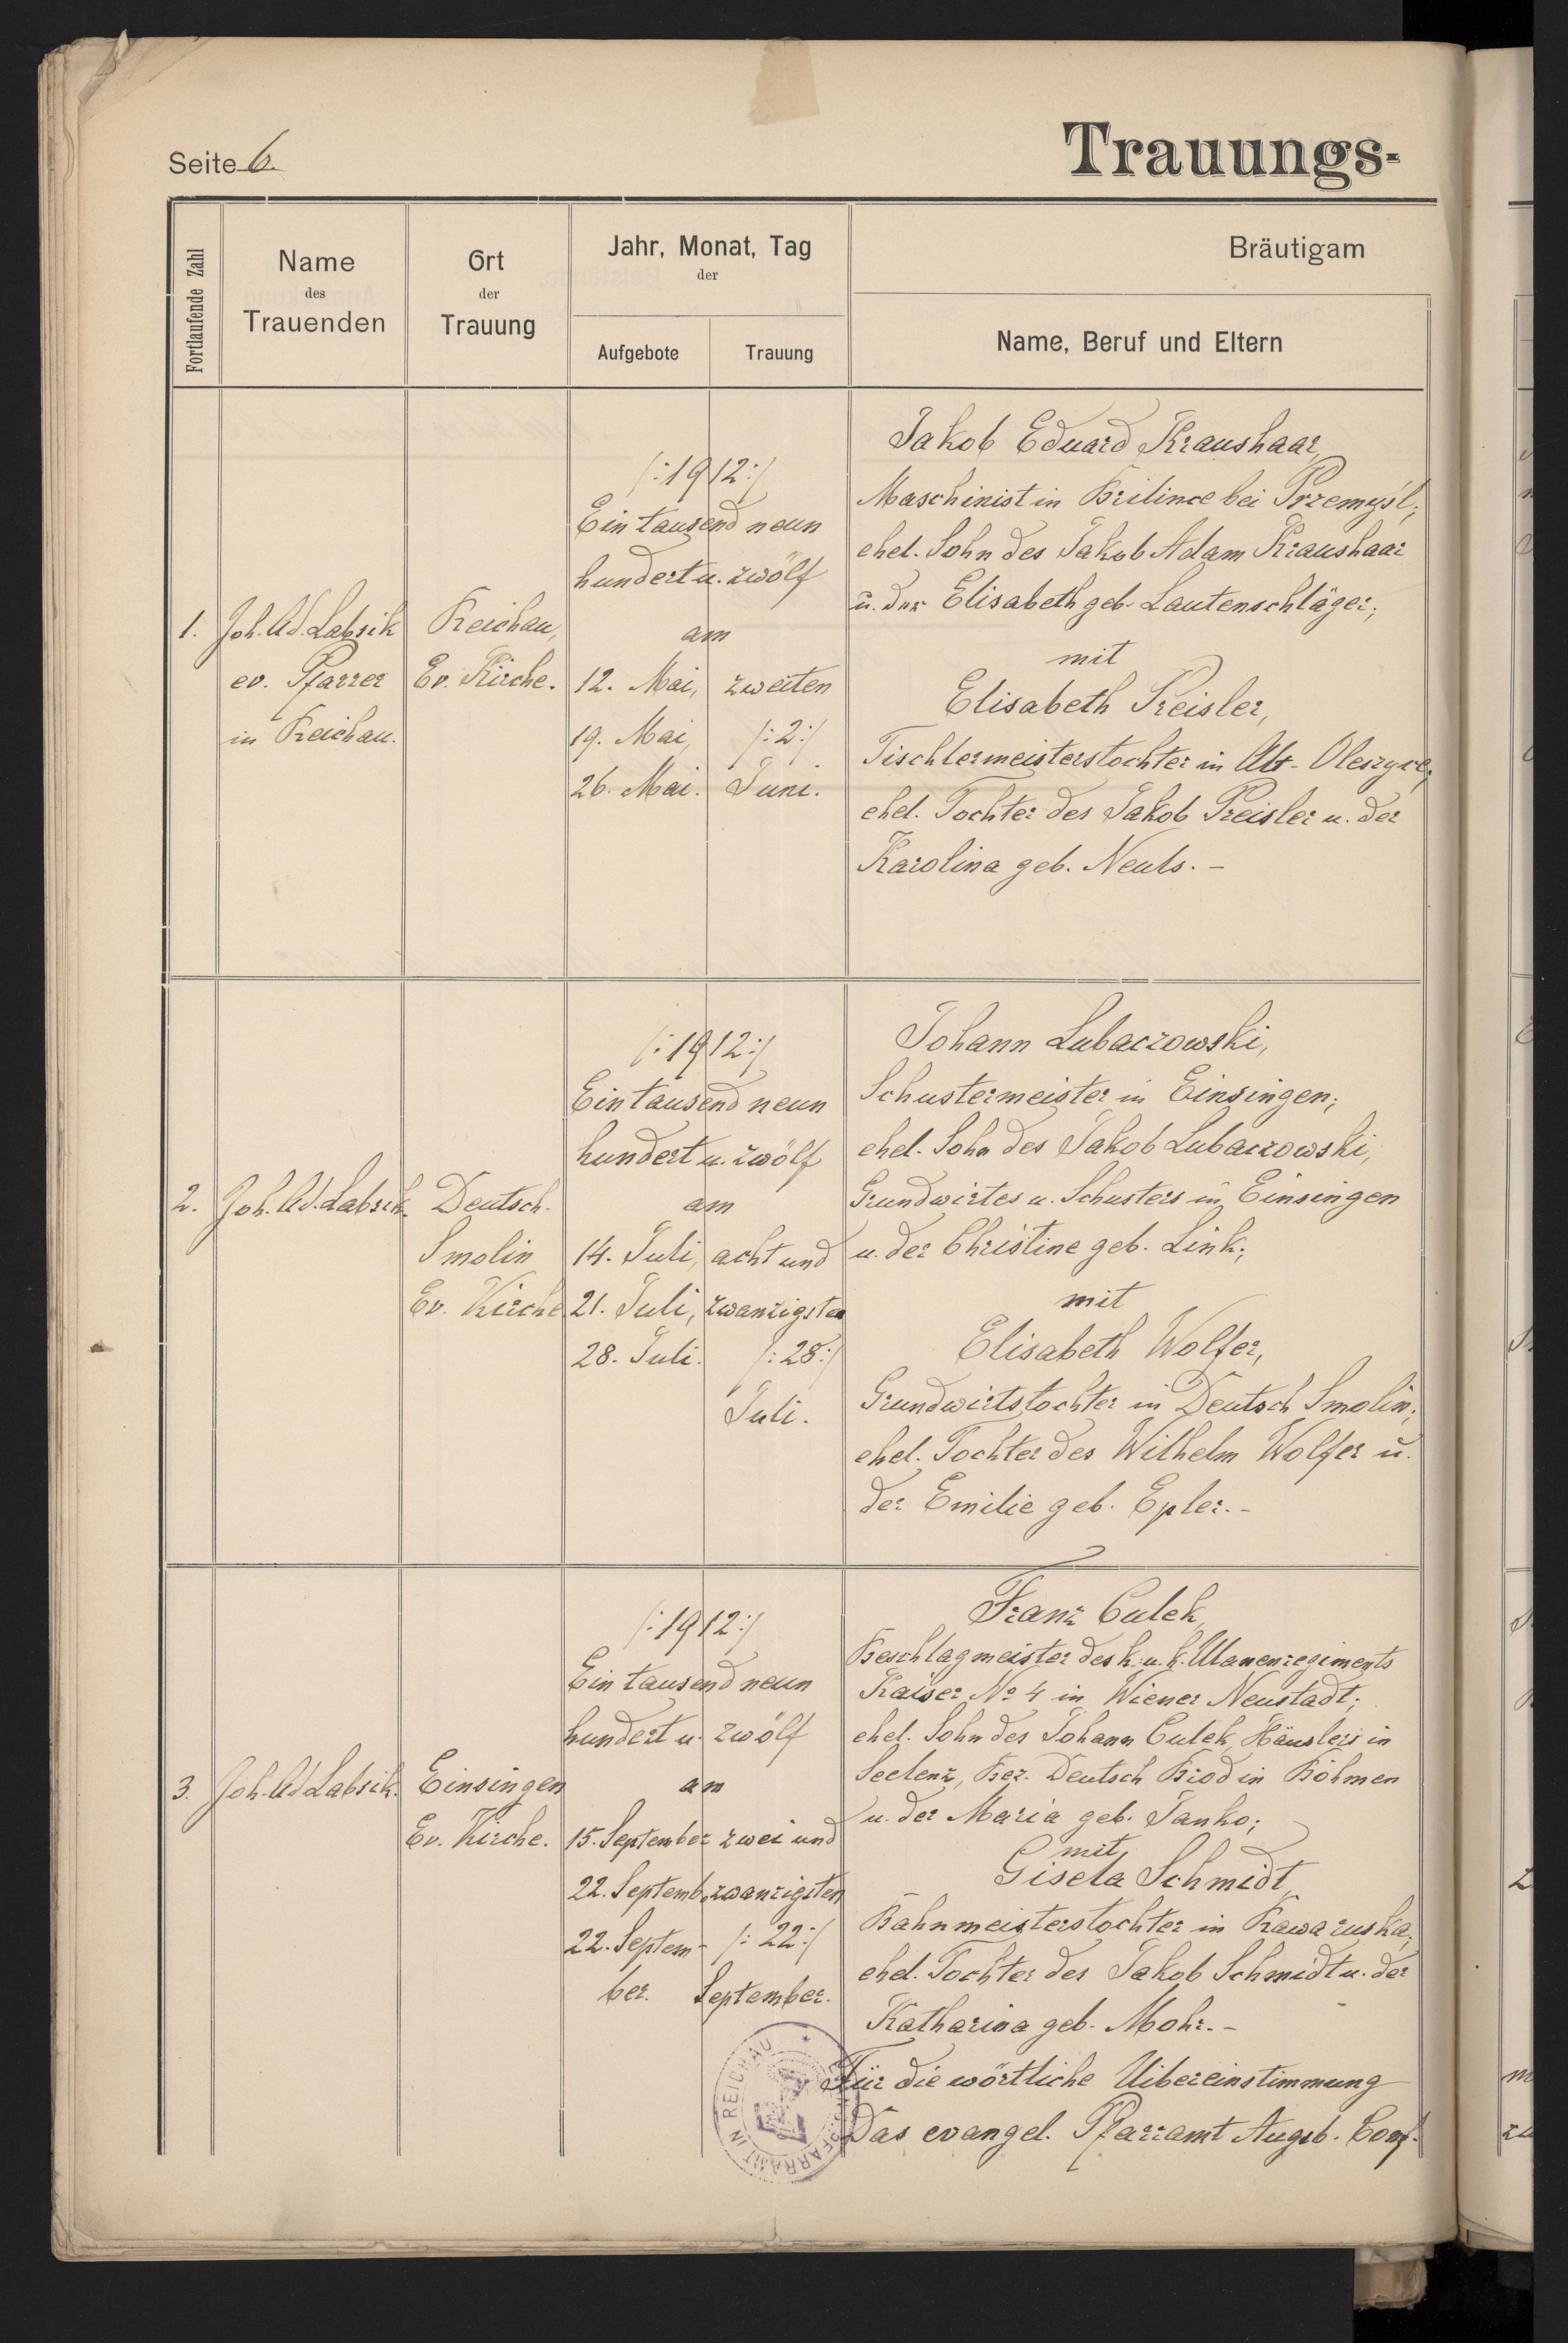 Seite 6.
Trauungs-
Fortlaufende Zahl
Name
des
Trauenden
Ort
der
Trauung
Jahr, Monat, Tag
der
Aufgebote
Trauung
Bräutigam
Name, Beruf und Eltern
1.
Joh. Ad. Labsik
ev. Pfarrer
in Reichau.
Reichau,
Ev. Kirche.
/:1912:/
Ein tausend neun
hundert u. zwölf
am
12. Mai,
19. Mai,
26. Mai.
zweiten
/:2:/
Juni.
Jakob Eduard Kraushaar,
Maschinist in Brilince bei Przemyśl;
ehel. Sohn des Jakob Adam Kraushaar
u. der Elisabeth geb. Lautenschläger;
mit
Elisabeth Preisler,
Tischlermeisterstochter in Alt-Oleszyce;
ehel. Tochter des Jakob Preisler u. der
Karolina geb. Neuls. -
2.
Joh. Ad. Labsik.
Deutsch-
Smolin
Ev. Kirche
/:1912:/
Ein tausend neun
hundert u. zwölf
am
14. Juli,
21. Juli,
28. Juli.
acht und
zwanzigsten
/:28:/
Juli.
Johann Lubaczowski,
Schustermeister in Einsingen;
ehel. Sohn des Jakob Lubaczowski,
Grundwirtes u. Schusters in Einsingen
u. der Christine geb. Link;
mit
Elisabeth Wolfer,
Grundwirtstochter in Deutsch Smolin;
ehel. Tochter des Wilhelm Wolfer u.
der Emilie geb. Epler. -
3.
Joh. Ad. Labsik.
Einsingen
Ev. Kirche.
/:1912:/
Ein tausend neun
hundert u. zwölf
am
15. September
22. Septemb.
22. Septem-
ber.
zwei und
zwanzigsten
/:22:/
September.
Franz Culek,
Beschlagmeister des k. u. k. Ulanenregiments
Kaiser No 4 in Wiener Neustadt;
ehel. Sohn des Johann Culek, Häuslers in
Seelenz, Bez. Deutsch Brod in Böhmen
u. der Maria geb. Janko;
mit
Gisela Schmidt,
Bahnmeisterstochter in Rawa ruska;
ehel. Tochter des Jakob Schmidt u. der
Katharina geb. Mohr. -
Für die wörtliche Uibereinstimmung
Das evangel. Pfarramt Augsb. Conf.
PFARRAMT IN REICHAU